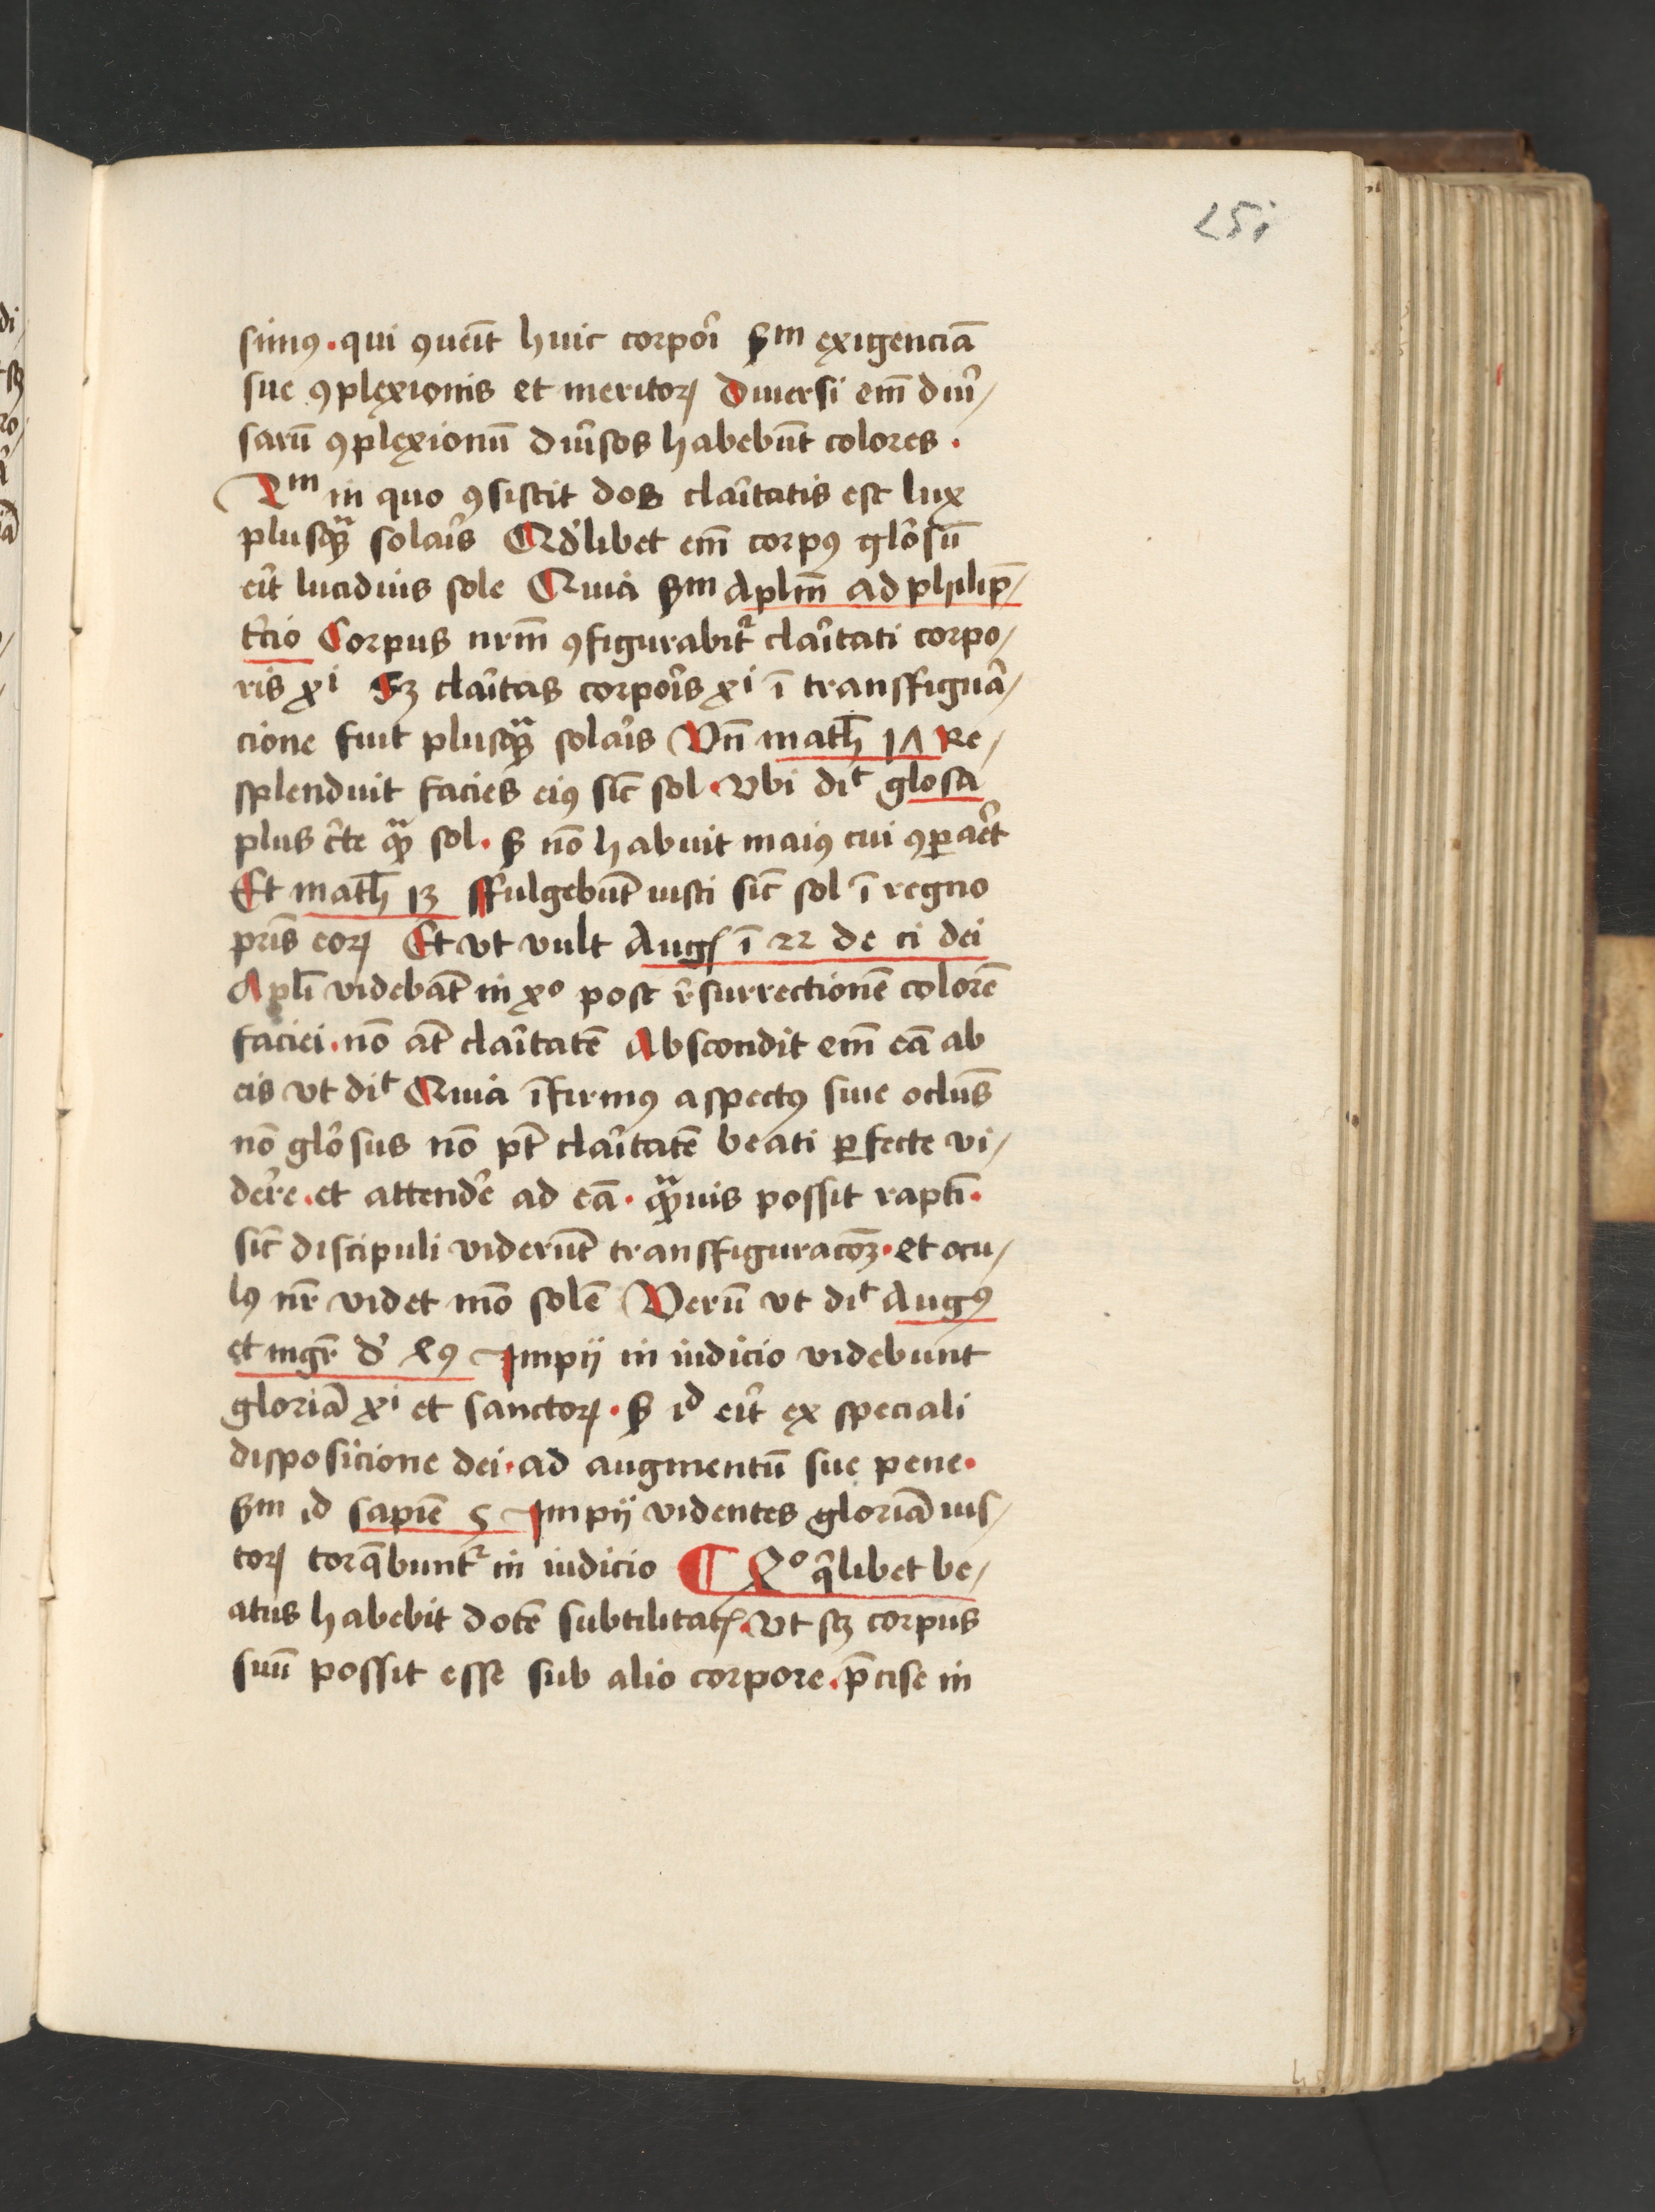 251
simꝰ · qui ꝯueīt huic corpoꝛi̾ ẜm exigenciā
sue ꝯplexionis et meritoꝝ Diuersi em̄ diu̾/
sarū ꝯplexionū diu̾sos habebūt colores ·
2m in quo ꝯsistit dos clai̾tatis est lux
plusꝗᷓ solai̾s Qdlibet em̄ corpꝰ glo̾sū
ei̾t lucidius sole Quia ẜm Aplm̄ ad philip̄/
t̾cio Corpus nrm̄ ꝯfigurabit᷑ clai̾tati corpo/
ris xi Sꝫ clai̾tas corpoi̾s xi ī transffigua̾/
cione fuit plusꝗᷓ solai̾s Vn̄ math̄ 17 Re/
splenduit facies eiꝰ sic̄ sol · Vbi dit glosa
plus c̾te ꝗᷓ sol · ẜ nō habuit maiꝰ cui ꝯꝑae̾t
Et math̄ 13 ffulgebūt iusti sic̄ sol ī regno
pr̄is eoꝝ Et vt vult Augꝭ ī 22 de ci dei
Apl̄i videbāt in xo post r̾surrectionē colorē
faciei · nō at̄ clai̾tatē Abscondit em̄ eā ab
eis vt dit Quia īfirmꝰ aspectꝰ siue oclūs
nō glo̾sus nō pt̄ clai̾tatē beati ꝑfecte vi/
de̾re · et attende̾ ad eā · ꝗᷓuis possit raptī ·
sic̄ discipuli viderūt transffiguracōꝫ · et ocu/
lꝰ nr̄ videt mō solē Verū vt dit Augꝰ
et mgr̄ d̾ 49 Impij in iudicio videbunt
gloriā xi et sanctoꝝ · ẜ id ei̾t ex speciali
disposicione dei · ad augmentū sue pene ·
ẜm id sapiē 5 Impij videntes gloriā ius/
toꝝ torq̄bunt᷑ in iudicio ¶ 4o q̾libet be/
atus habebit dotē subtilitatꝭ · Vt sꝫ corpus
suū possit esse sub alio corpore · p̄cise in